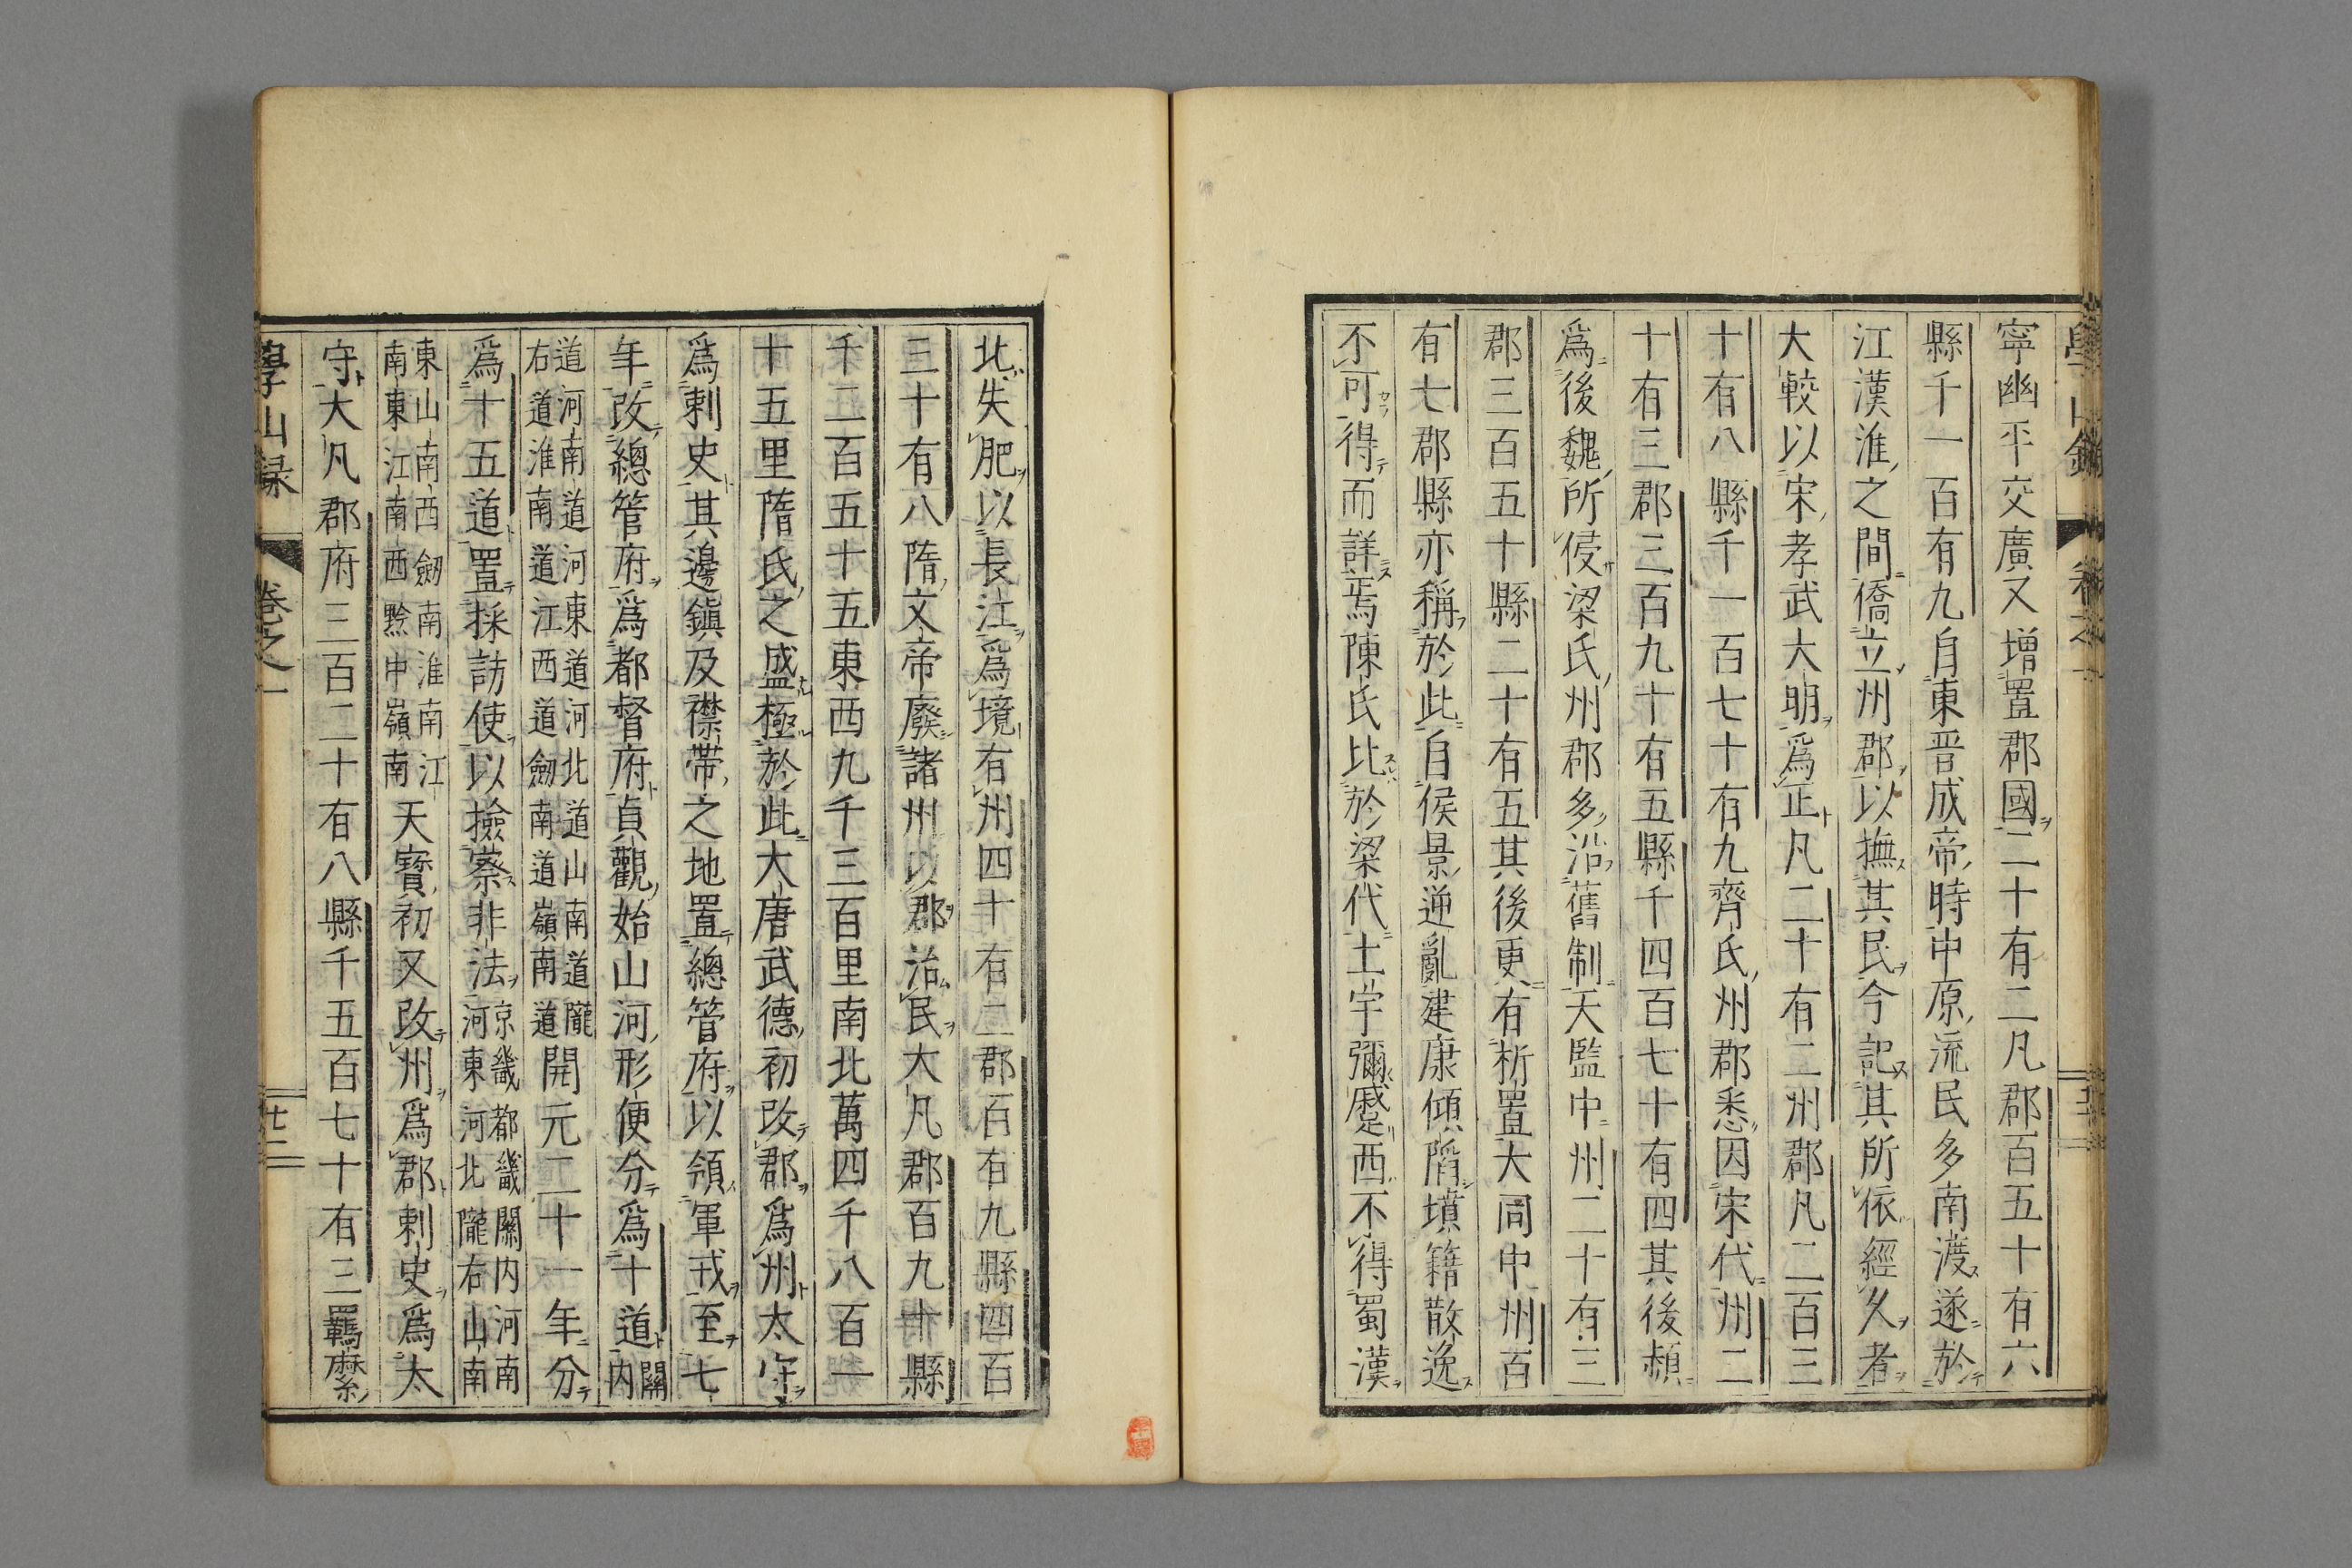 寧幽平交廣又增置郡國二十有二凡郡百五十有六
縣千一百有九自東晉成帝時中原流民多南渡遂於
江漢淮之間僑立州郡以撫其民今記其所依經久者
大較以宋孝武大明爲正凡二十有二州郡凡二百三
十有八縣千一百七十有九齊氏州郡悉因宋代州二
十有三郡三百九十有五縣千四百七十有四其後頻
爲後魏所侵梁氏州郡多沿舊制天監中州二十有三
郡三百五十縣二十有五其後更有析置大同中州百
有七郡縣亦稱於此自侯景逆亂建康傾陷墳籍散逸
不可得而詳焉陳氏比於梁代土宇彌蹙西不得蜀漢
北失肥以長江爲境有州四十有二郡百有九縣四百
三十有八隋文帝廢諸州以郡治民大凡郡百九十縣
千二百五十五東西九千三百里南北萬四千八百一
十五里隋氏之盛極於此大唐武德初改郡爲州太守
爲刺史其邊鎭及襟帶之地置總管府以領軍戎至七
年改總管府爲都督府貞觀始山河形便分爲十道關内
道河南道河東道河北道山南道隴
右道淮南道江西道劒南道嶺南道開元二十一年分
爲十五道置採訪使以撿察非法京畿都畿關内河南
河東河北隴右山南
東山南西劒南淮南江
南東江南西黔中嶺南天寶初又改州爲郡刺史爲太
守大凡郡府三百二十有八縣千五百七十有三羈縻
學山録
卷之一
廿二